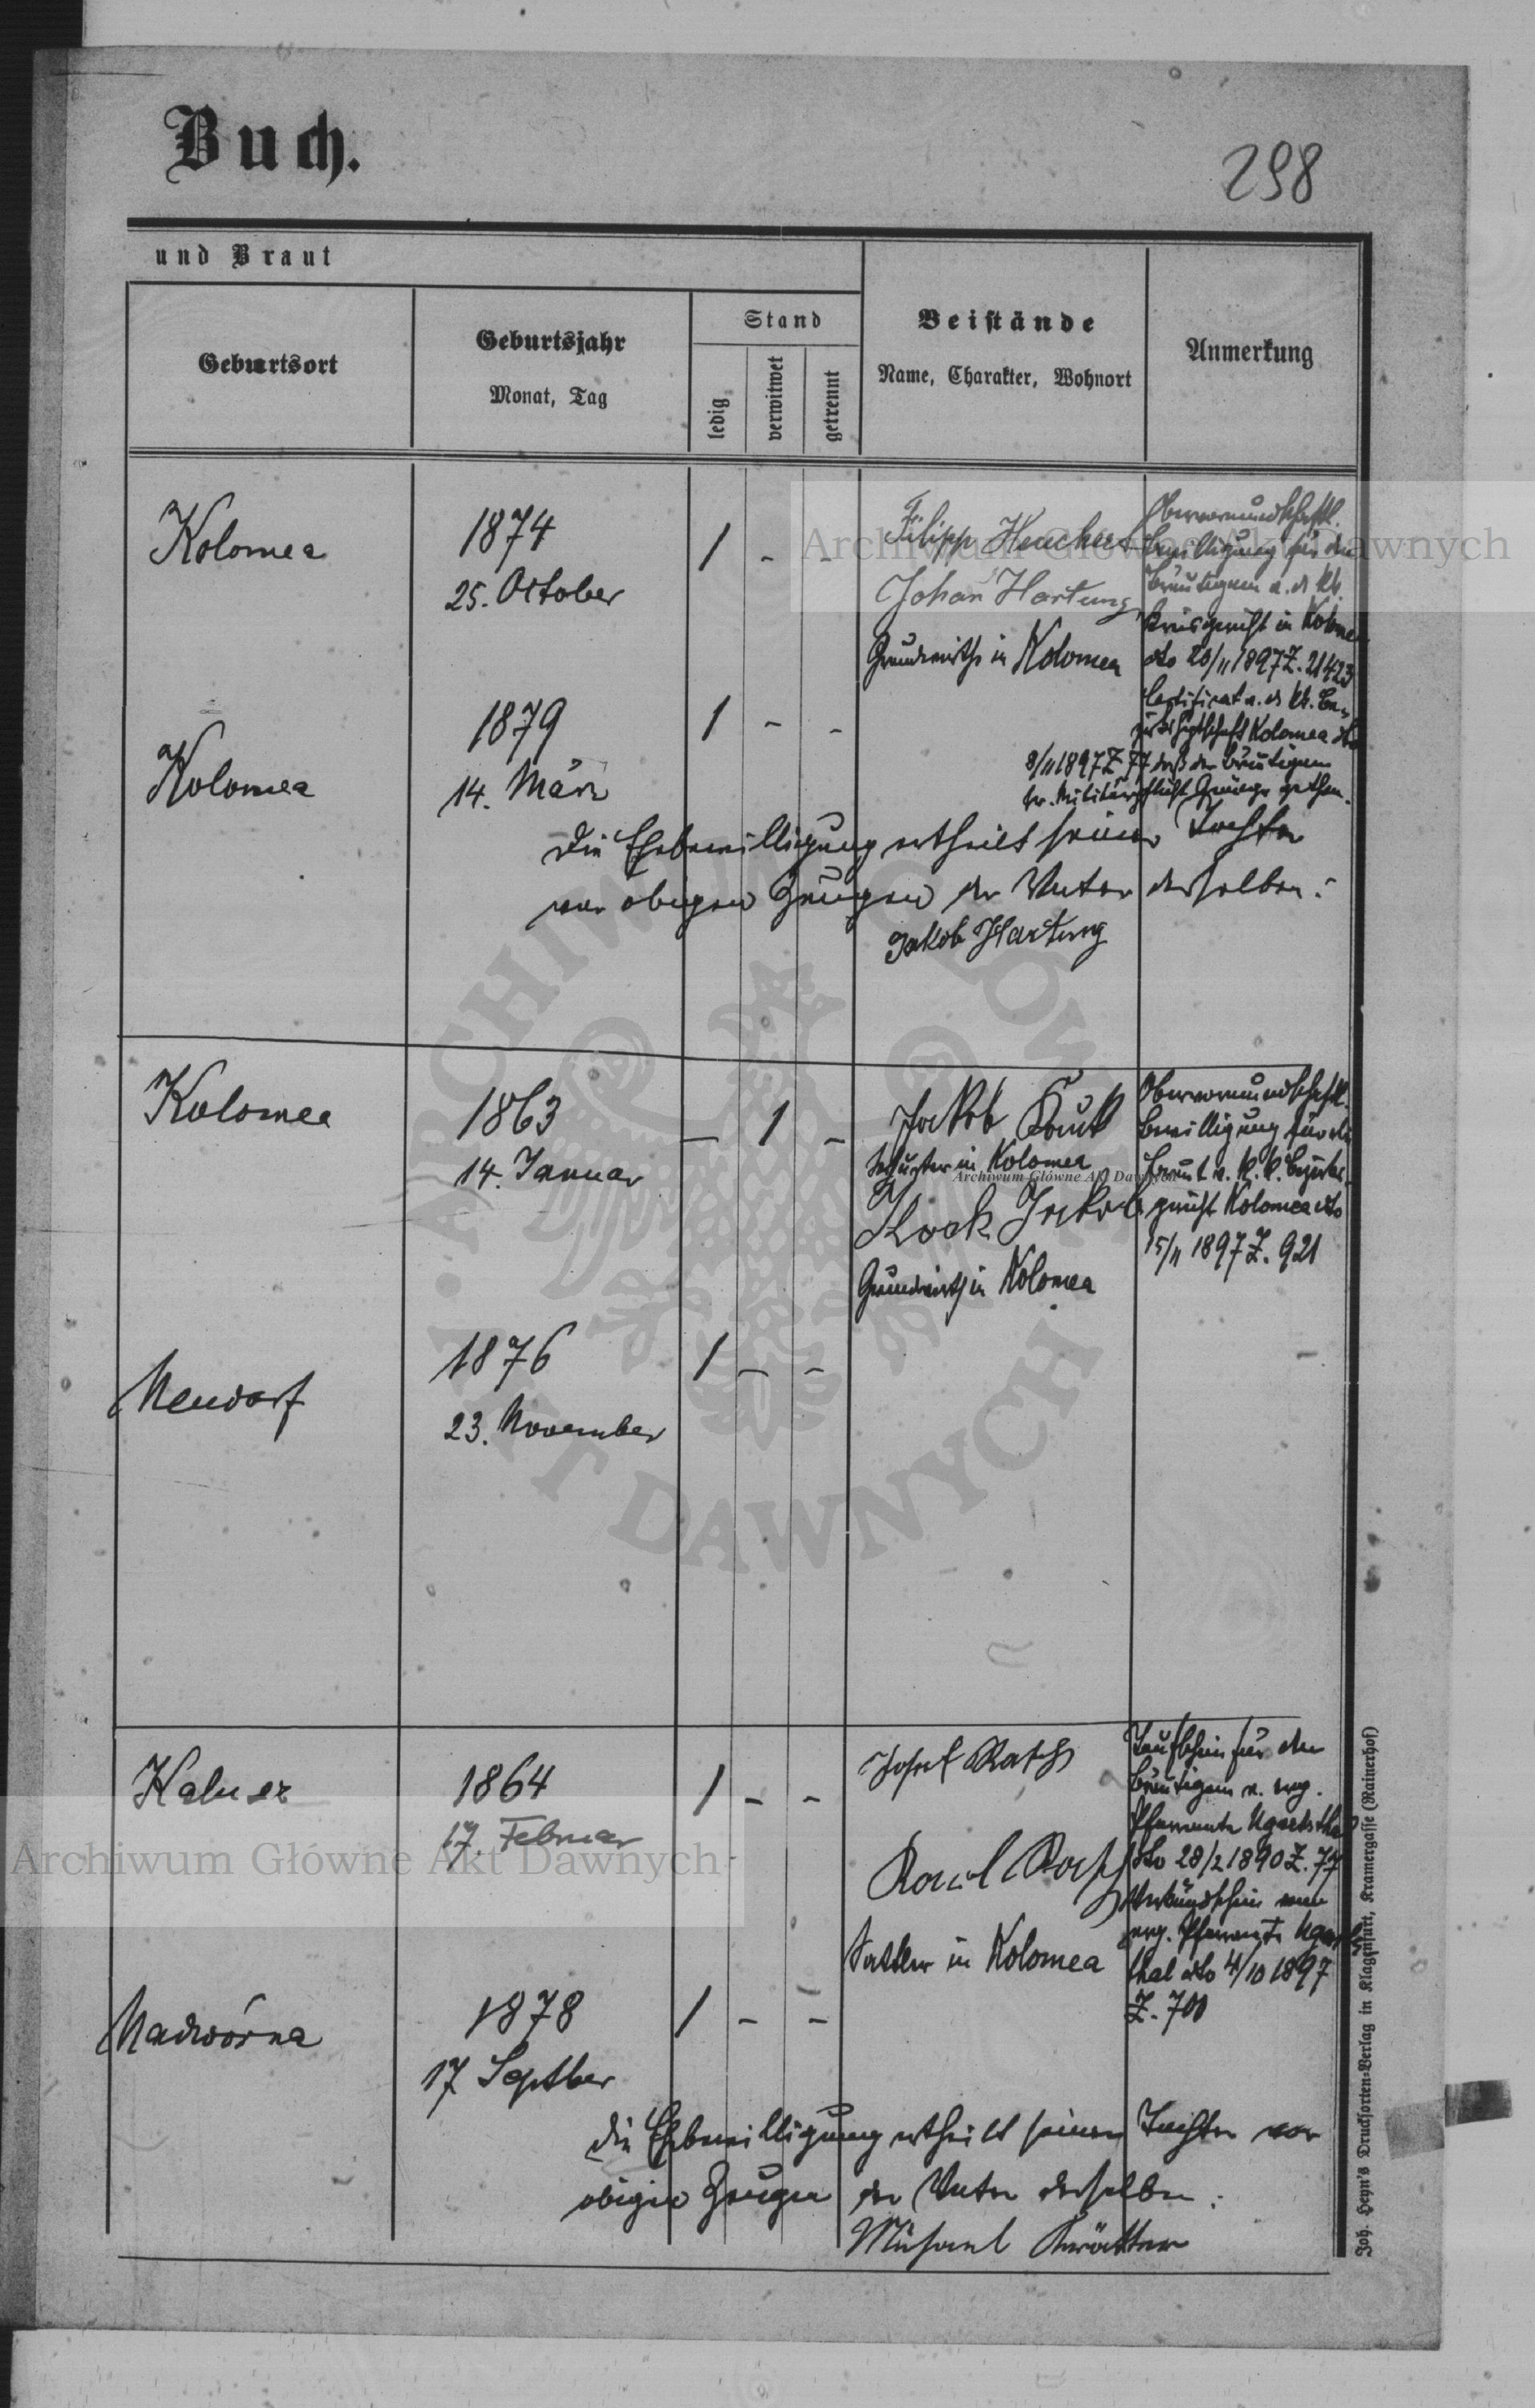 Buch.
298
und Braut
Geburtsort
Geburtsjahr
Monat, Tag
Stand
ledig
verwitwet
getrennt
Beistände
Name, Charakter, Wohnort
Anmerkung
Kolomea
1874
25. October
1 - -
Filipp Heuchert
Johan Hartung
Grundwirthe in Kolomea
Obervormundschaftl.
Bewilligung für den
Bräutigam v. d. kk.
Kreisgericht in Kolomea
dto 20/11 1897 Z. 21423
Kolomea
1879
14. März
1 - -
Certificat v. d. kk. Be-
zirkshptschaft Kolomea dto
8/11 1897 Z 77 daß der Bräutigam
der Militärpflicht Genüge gethan.
Die Ehebewilligung ertheilt seiner Tochter
vor obigen Zeugen der Vater derselben:
Jakob Hartung
Kolomea
1863
14. Januar
- 1 -
Jakob
Schuster in Kolomea
Jakob
Grundwirth in Kolomea
Obervormundschaftl.
Bewilligung für die
Braut v. k. k. Bezirks-
gericht Kolomea dto
15/11 1897 Z. 921
Neudorf
1876
23. November
1 - -
Kalusz
1864
17. Februar
1 - -
Josef Rasch
Karl Rasch
Sattler in Kolomea
Taufschein für den
Bräutigam v. evg.
Pfarramte Ugartsthal
dto 28/2 1890 Z. 77
Verkündschein vom
evg. Pfarramte Ugarts
thal dto 4/10 1897
Z. 700
Nadwórna
1878
17 Septber
1 - -
Die Ehebewilligung ertheilt seiner Tochter vor
obigen Zeugen der Vater derselben:
Joh. Heyn's Drucksorten-Verlag in Klagenfurt, Kramergasse (Rainerhof)
Archiwum Główne Akt Dawnych
Archiwum Główne Akt Dawnych
Archiwum Główne Akt Dawnych